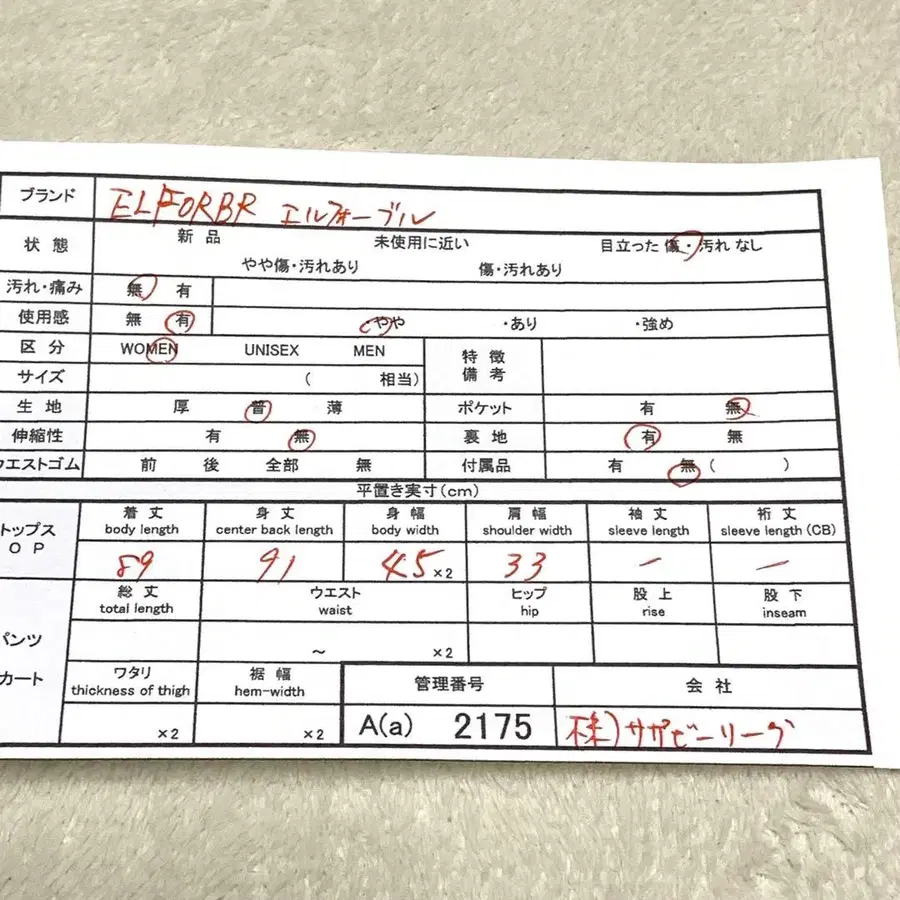 ブランド ELFORBR エルフォーブル
状態 新品 未使用に近い 目立った傷・汚れなし
やや傷・汚れあり 傷・汚れあり
汚れ・痛み 無 有
使用感 無 有 ・やや ・あり ・強め
区分 WOMEN UNISEX MEN 特徴
備考
サイズ ( 相当)
生地 厚 普 薄 ポケット 有 無
伸縮性 有 無 裏地 有 無
ウエストゴム 前 後 全部 無 付属品 有 無 ( )
平置き実寸(cm)
トップス
OP
着丈 身丈 身幅 肩幅 袖丈 裄丈
body length center back length body width shoulder width sleeve length sleeve length (CB)
89 91 45 ×2 33 — —
パンツ
カート
総丈 ウエスト ヒップ 股上 股下
total length waist hip rise inseam
～ ×2
ワタリ 裾幅 管理番号 会社
thickness of thigh hem-width
×2 ×2 A(a) 2175 株)サザビーリーグ